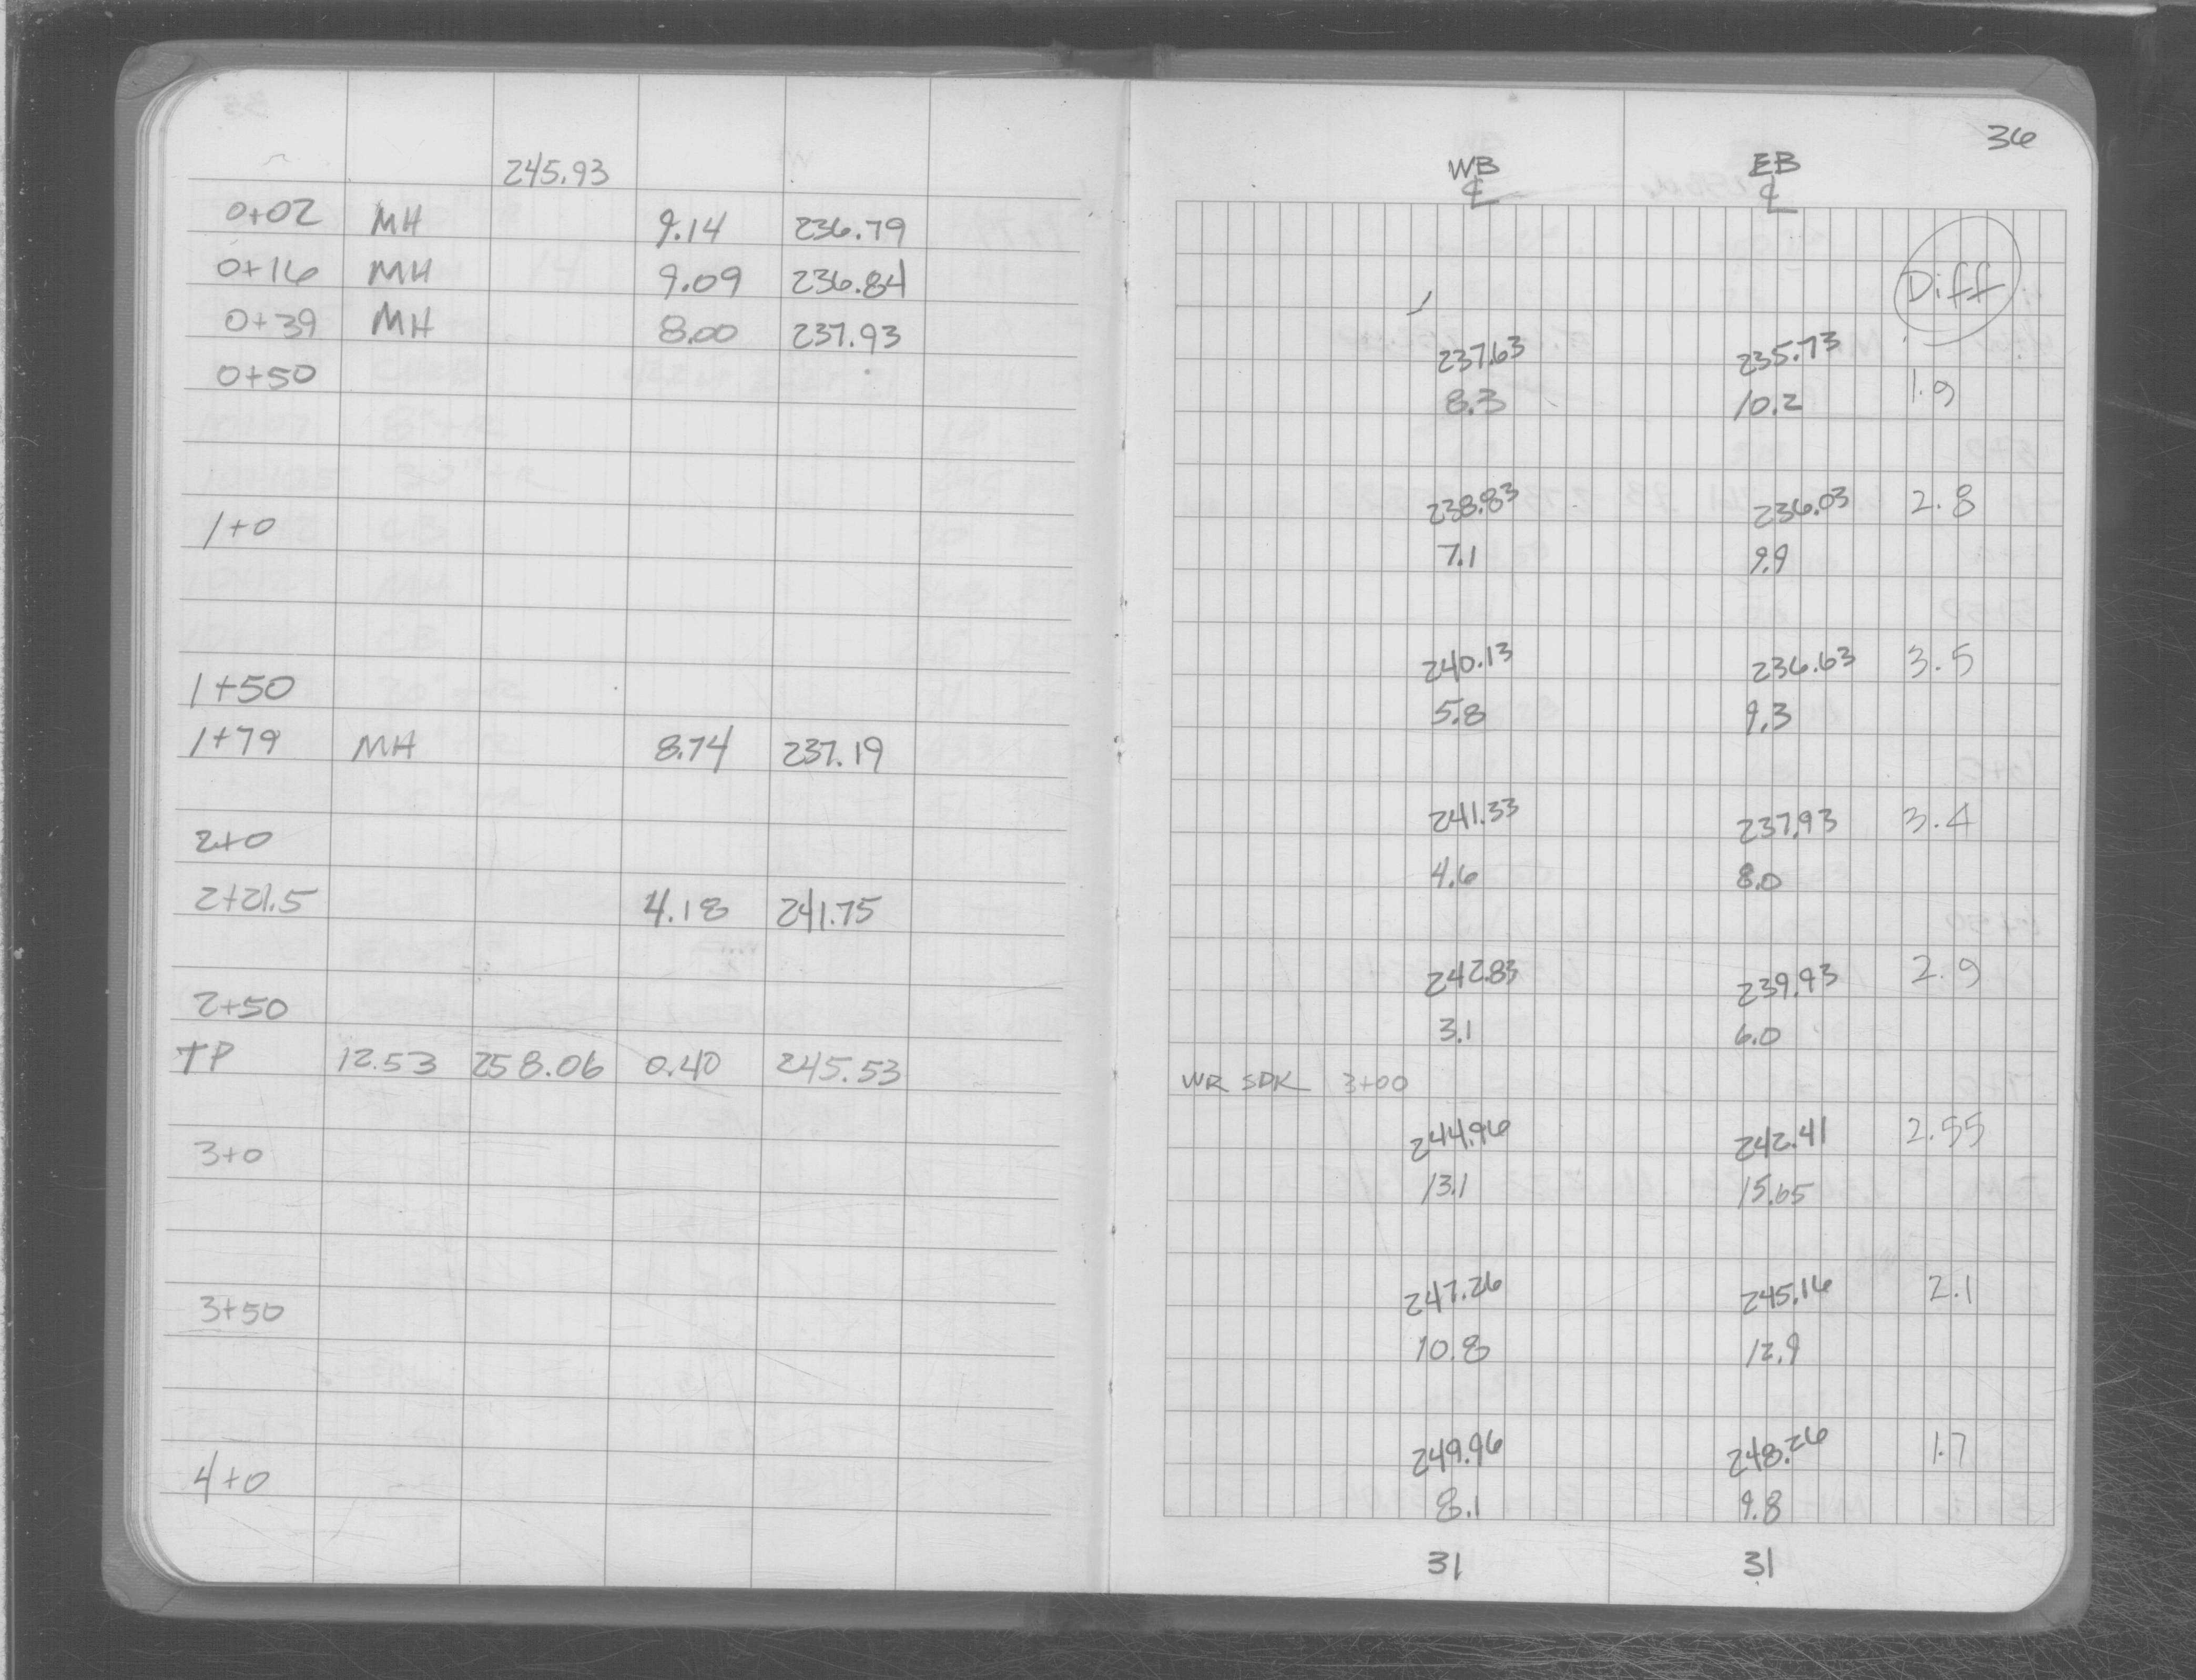 245.93
0+02 MH 9.14 236.79
0+16 MH 9.09 236.84
0+39 MH 8.00 237.93
0+50
1+0
1+50
1+79 MH 8.74 237.19
2+0
2+21.5 4.18 241.75
2+50
TP 12.53 258.06 0.40 245.53
3+0
3+50
4+0
36
WB EB
℄ ℄
Diff
237.63 235.73
8.3 10.2 1.9
238.83 236.03 2.8
7.1 9.9
240.13 236.63 3.5
5.8 9.3
241.33 237.93 3.4
4.6 8.0
242.83 239.93 2.9
3.1 6.0
WR SDK 3+00
244.96 242.41 2.55
13.1 15.65
247.26 245.16 2.1
10.8 12.9
249.96 248.26 1.7
8.1 9.8
31 31